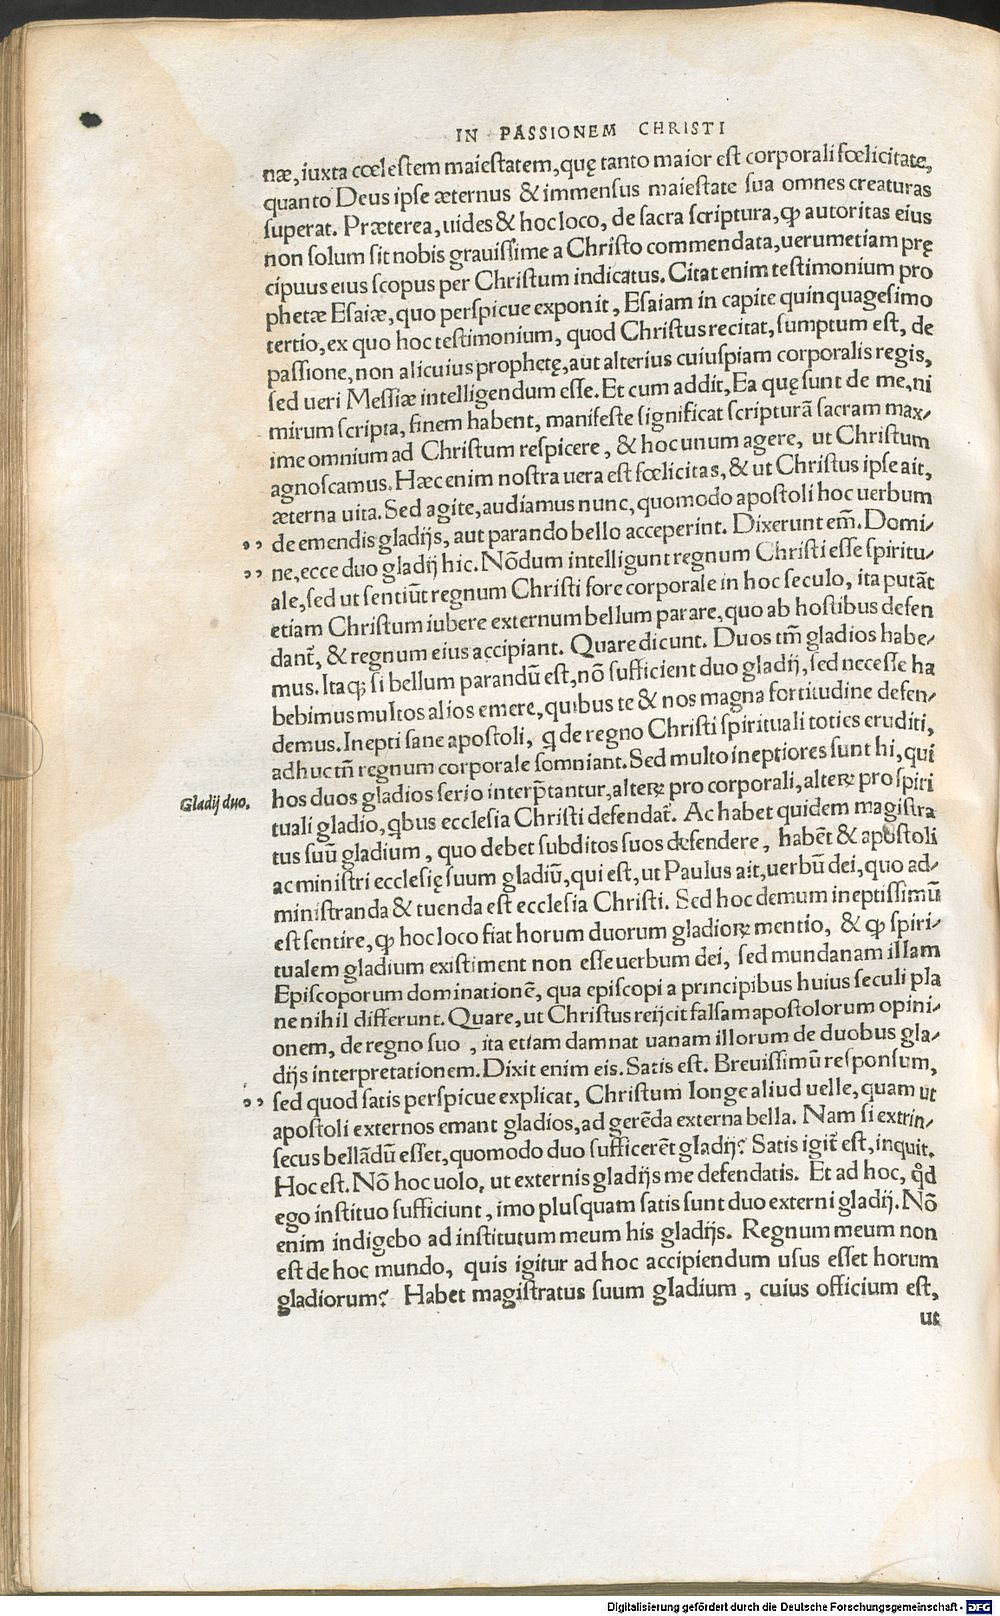 IN PASSIONEM CHRISTI
næ, iuxta cœlestem maiestatem, quę tanto maior est corporali fœlicitate,
quanto Deus ipse æternus & immensus maiestate sua omnes creaturas
superat. Præterea, uides & hoc loco, de sacra scriptura, ꝙ autoritas eius
non solum sit nobis grauissime a Christo commendata, uerumetiam prę
cipuus eius scopus per Christum indicatus. Citat enim testimonium pro
phetæ Esaiæ, quo perspicue exponit, Esaiam in capite quinquagesimo
tertio, ex quo hoc testimonium, quod Christus recitat, sumptum est, de
passione, non alicuius prophetę, aut alterius cuiuspiam corporalis regis,
sed ueri Messiæ intelligendum esse. Et cum addit, Ea quę sunt de me, ni
mirum scripta, finem habent, manifeste significat scripturã sacram max/
ime omnium ad Christum respicere, & hoc unum agere, ut Christum
agnoscamus. Hæc enim nostra uera est fœlicitas, & ut Christus ipse ait,
æterna uita. Sed agite, audiamus nunc, quomodo apostoli hoc uerbum
,, de emendis gladijs, aut parando bello acceperint. Dixerunt em̃. Domi/
,, ne, ecce duo gladij hic. Nõdum intelligunt regnum Christi esse spiritu/
ale, sed ut sentiũt regnum Christi fore corporale in hoc seculo, ita putãt
etiam Christum iubere externum bellum parare, quo ab hostibus defen
dant̃, & regnum eius accipiant. Quare dicunt. Duos tm̃ gladios habe/
mus. Itaqꝫ si bellum parandũ est, nõ sufficient duo gladij, sed necesse ha
bebimus multos alios emere, quibus te & nos magna fortitudine defen/
demus. Inepti sane apostoli, q de regno Christi spirituali toties eruditi,
adhuc tñ regnum corporale somniant. Sed multo ineptiores sunt hi, qui
Gladij duo. hos duos gladios serio interp̃tantur, alteꝝ pro corporali, alteꝝ pro spiri
tuali gladio, qbus ecclesia Christi defendat̃. Ac habet quidem magistra
tus suũ gladium, quo debet subditos suos defendere, habẽt & apostoli
ac ministri ecclesię suum gladiũ, qui est, ut Paulus ait, uerbũ dei, quo ad/
ministranda & tuenda est ecclesia Christi. Sed hoc demum ineptissimũ
est sentire, ꝙ hoc loco fiat horum duorum gladioꝝ mentio, & ꝙ spiri/
tualem gladium existiment non esse uerbum dei, sed mundanam illam
Episcoporum dominationẽ, qua episcopi a principibus huius seculi pla
ne nihil differunt. Quare, ut Christus reijcit falsam apostolorum opini/
onem, de regno suo, ita etiam damnat uanam illorum de duobus gla/
dijs interpretationem. Dixit enim eis. Satis est. Breuissimũ responsum,
,, sed quod satis perspicue explicat, Christum longe aliud uelle, quam ut
apostoli externos emant gladios, ad gerẽda externa bella. Nam si extrin/
secus bellãdũ esset, quomodo duo sufficerẽt gladij? Satis igit̃ est, inquit.
Hoc est. Nõ hoc uolo, ut externis gladijs me defendatis. Et ad hoc, qd̃
ego instituo sufficiunt, imo plusquam satis sunt duo externi gladij. Nõ
enim indigebo ad institutum meum his gladijs. Regnum meum non
est de hoc mundo, quis igitur ad hoc accipiendum usus esset horum
gladiorum? Habet magistratus suum gladium, cuius officium est,
ut
Digitalisierung gefördert durch die Deutsche Forschungsgemeinschaft - DFG